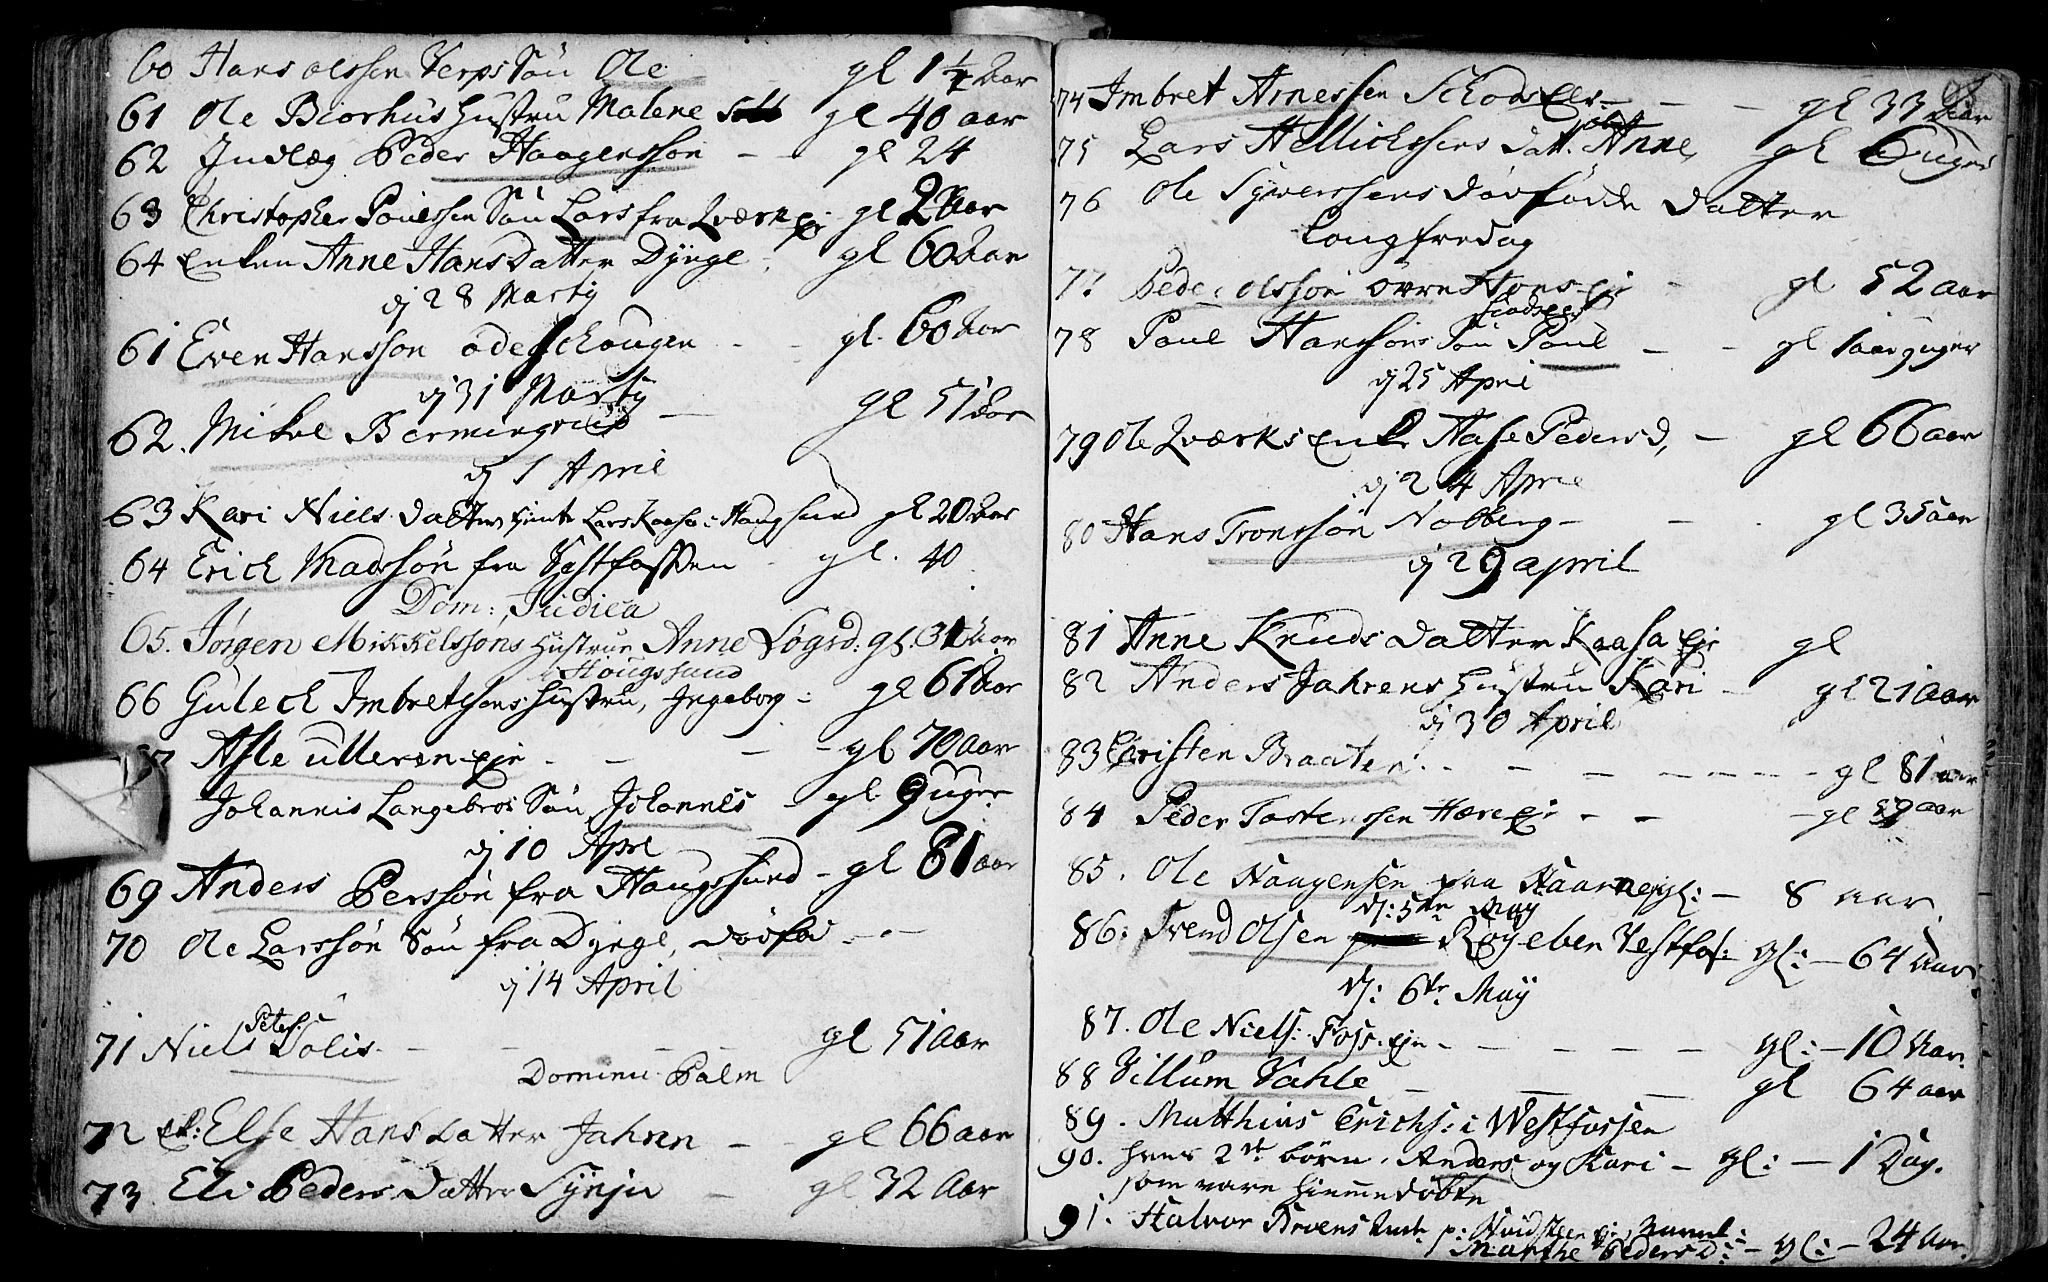 60 Hans olssen Verps Søn Ole gl 1 1/4 Aar
61 Ole Biorhus Hustru Malene gl 40 aar
62 Indlæg Peder Haagenssøn - gl 24
63 Christopher Poulssen Søn Lars fra Qværk gl 2 Aar
64 Enken Anne Hans Datter Dynge gl 60 Aar
dj 28 Marty
61 Even Hanssøn ødeschougen - - gl. 60 Aar
dj 31 Marty
62. Mikel Bermingrud - gl 51 Aar
dj 1 April
63 Kari Niels datter Lars Kaasa i Haugsund gl 20 Aar
64 Erich Madssøn fra Vestfossen - gl. 40
Dom: Judica
65. Jørgen Mikkelssøns Hustrue Anne gl. 31 Aar
i Hougssund
66 Guleck Imbretssøns Hustru, Ingeborg - gl 61 Aar
67 Asle ulleren eje - - - gl 70 Aar
Johannis Langebros Søn Johannes - gl. 9 uger
dj 10 Apr
69 Anders Perssøn fra Haugssund - gl 81 aar
70 Ole Larssøn Søn fra Dynge, dødfød - -
dj 14 April
Peters:
71 Niels Solis - - - - gl 51 Aar
Dominic Palm
72 Ek: Else Hans Datter Jahren - - gl 66 aar
73 Eli Peders Datter - gl 32 Aar
74 Imbret Arnessen Schodseje - - - gl 33 Aar
75 Lars Hellichsens Datt. Anne, gl 6 uger
76 Ole Sywerssens dødfødde Datter
Langfredag
77 Peder olssøn øvre Hons eje - gl 52 aar
Schodseje
78 Paul Hanssøns Søn Poul - - gl 1 aar 9 uger
dj 25 April
79 Ole Qværks Enke Aase Peders d, - gl 66 aar
dj 24 Apri
80 Hans Tronssøn Nøbberg - - gl 35 aar
dj 29 april
81 Anne Knuds datter Kaasa eje gl
82 Anders Jahrens Hustru Kari - gl 21 Aar
dj 30 April
83 Cristen Braaten. - - - - - - - gl 81 aar
84 Peder Tostenssen Hære eje - - - gl 59 aar
85. Ole Haagensen fra Haarne gl: - 8 aar.
d: 5te May
86. Svend Olsen Røyeben Vestfos: gl: - 64 Aar:
d: 6te May
87. Ole Niels: Foss: eje - - - - - gl: - 10 Aar.
88 Villum Vahle - - - gl 64 aar
89. Matthias Erichs: i Westfossen
90. hans 2de børn, Anders og Kari - gl: - 1 Dag.
som vare hiemmedøbte
91. Halvor p:
Marthe Peders D: - gl: - 24 Aar.